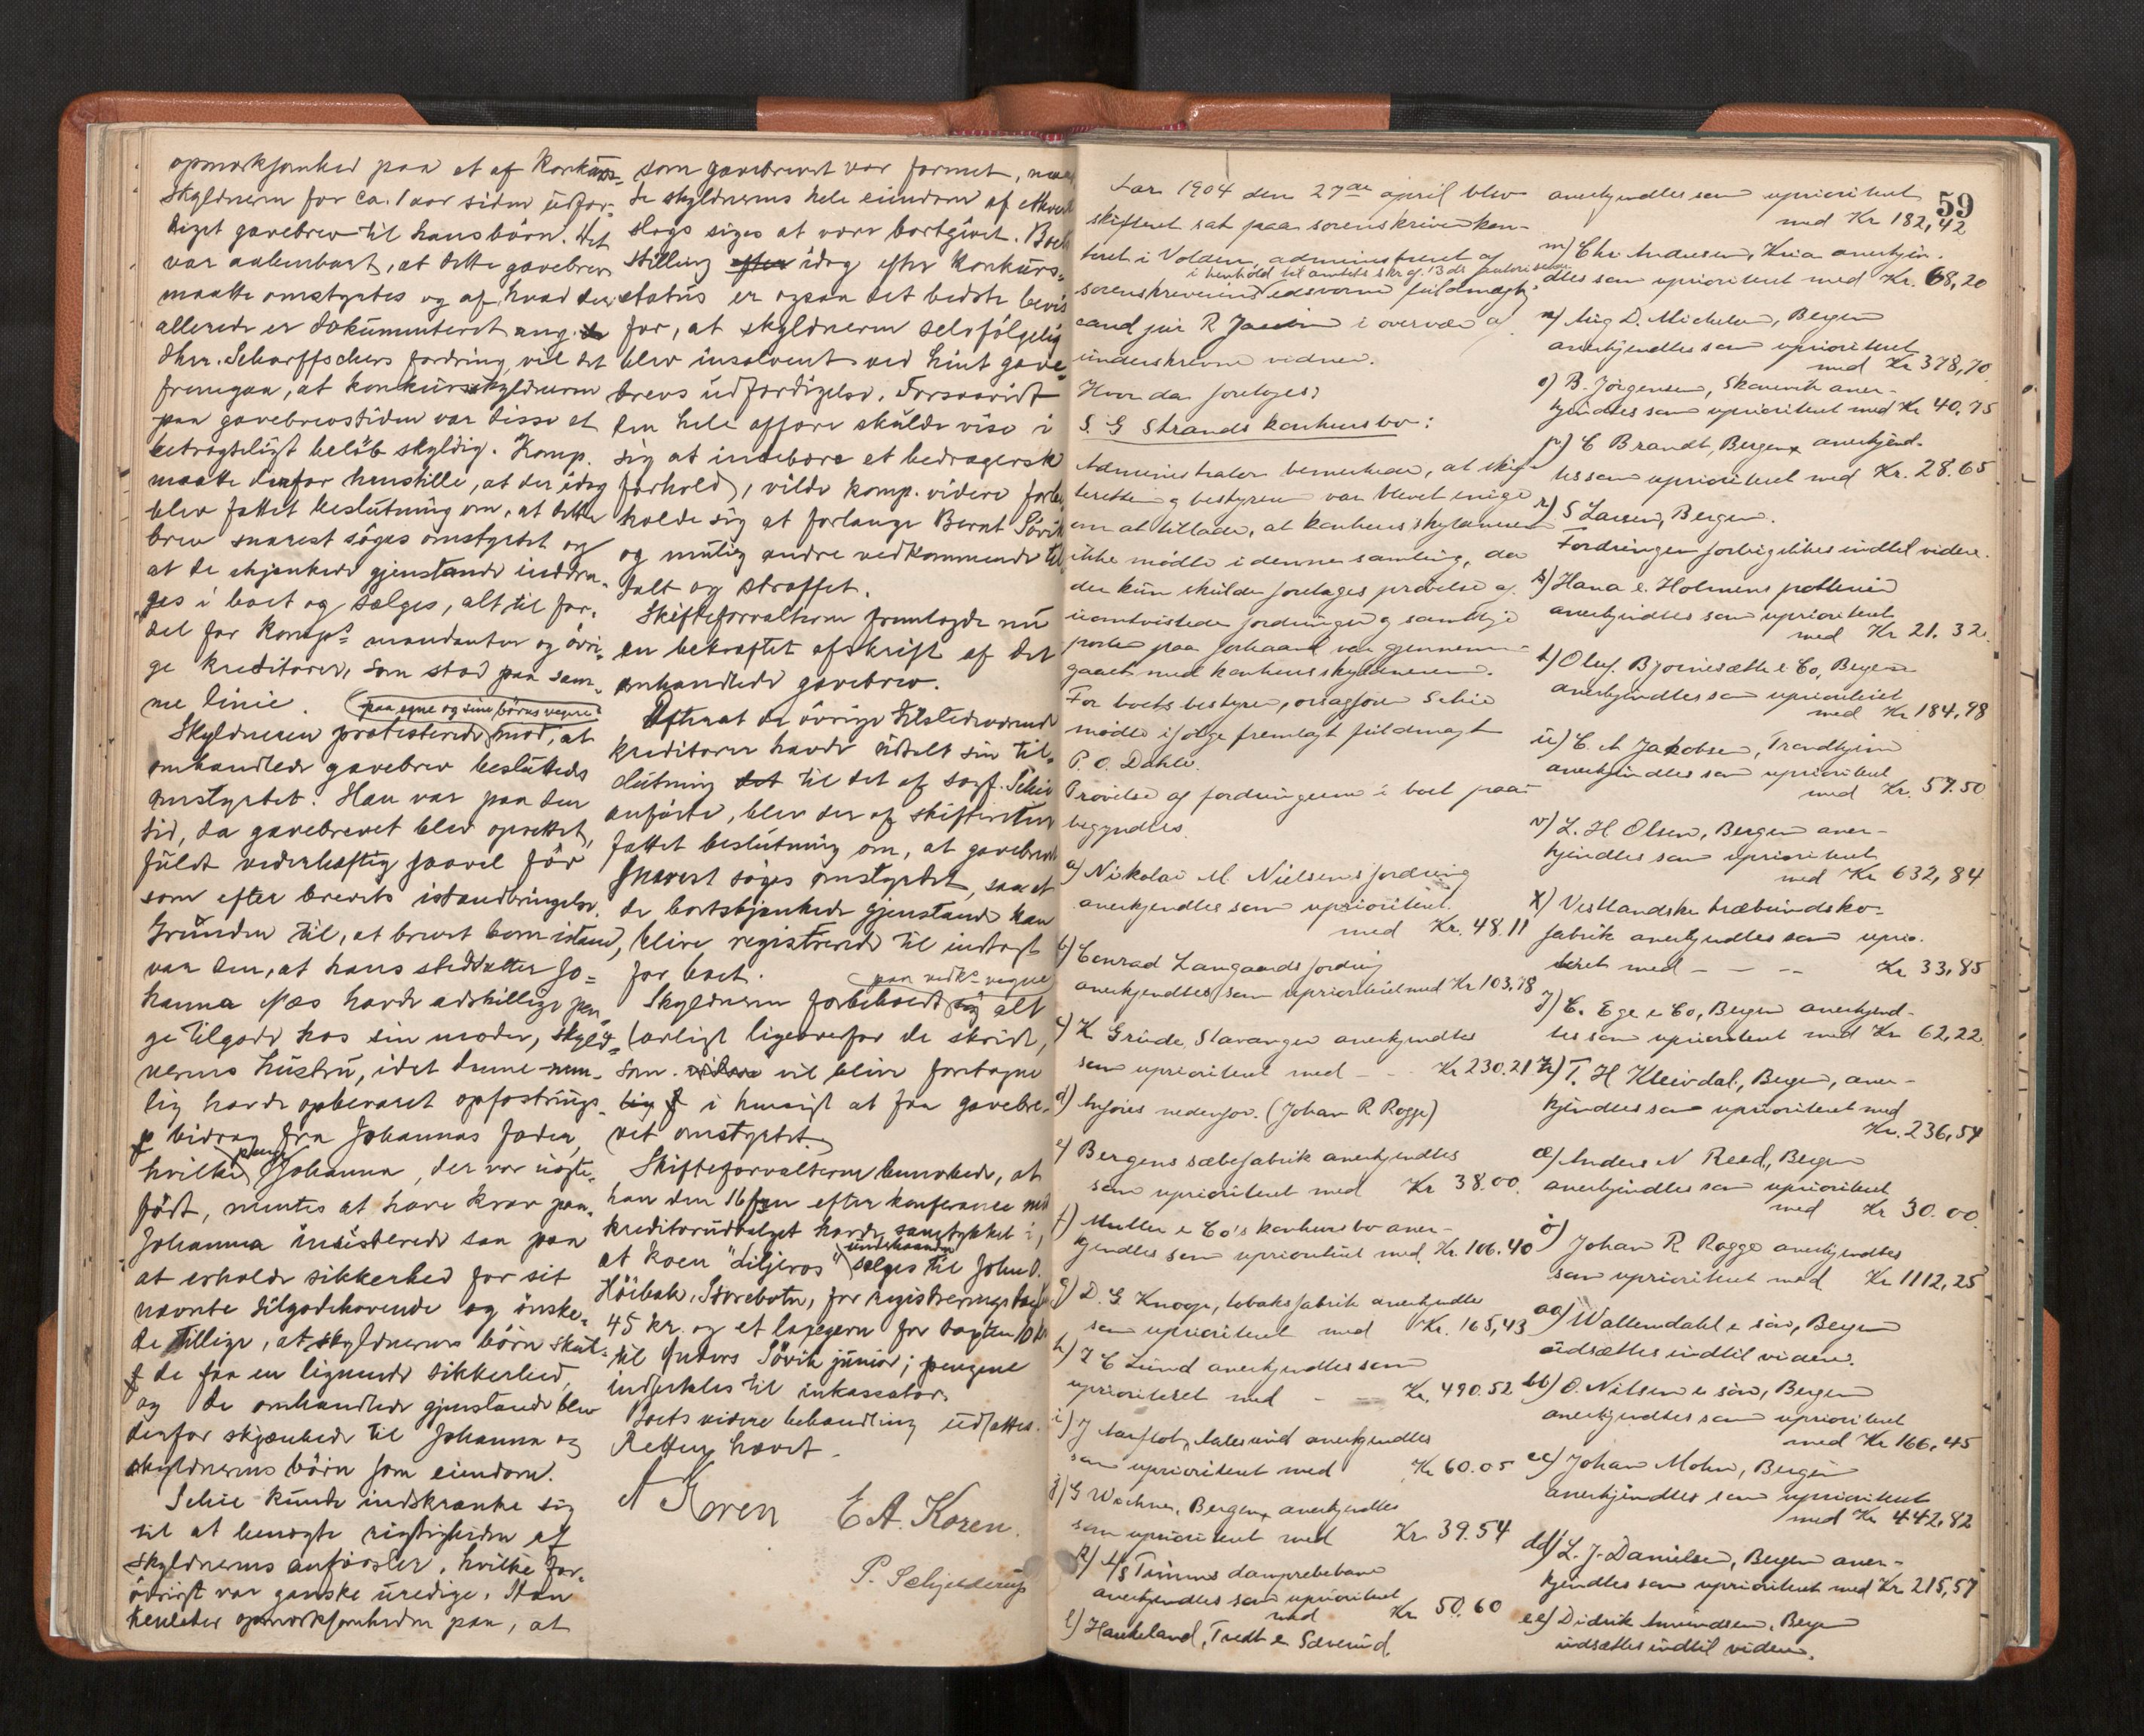 opmærksomhed paa et af konkurs-
skyldneren for ca. 1 aar siden udfær-
diget gavebrev til hans börn. Det
var aabenbart, at dette gavebrev
maatte omstyrtes og af hvad der
allerede er dokumenteret ang.
dhrr. Scharffschers fordring, vil det
fremgaa, at konkursskyldneren
paa gavebrevstiden var disse et
betragteligt belöb skyldig. Komp.
maatte derfor henstille, at der idag
blev fattet beslutning om, at dette
brev snarest söges omstyrtet og
at de skjænkede gjenstande inddra-
ges i boet og sælges, alt til for-
del for komps mandanter og övri-
ge kreditorer, som stod paa sam-
me linie.
paa egne og sine börns vegne
Skyldneren protesterede mod, at
omhandlede gavebrev besluttedes
omstyrtet. Han var paa den
tid, da gavebrevet blev oprettet,
fuldt vederhæftig saavel för
som efter brevets istandbringelse.
Grunden til, at brevet kom istand,
var den, at hans steddatter Jo-
hanna Næs havde adskillige pen-
ge tilgode hos sin moder, skyld-
nerens hustru, idet denne nem-
lig havde opbevaret opfostrings-
bidrag fra Johannas fader,
hvilke penge Johanna, der var uægte
födt, mentes at have krav paa.
Johanna insisterede saa paa
at erholde sikkerhed for sit
nævnte tilgodehavende og önske-
de tillige, at skyldnerens börn skul-
de faa en lignende sikkerhed,
og de omhandlede gjenstande blev
derfor skjænkede til Johanna og
skyldnerens börn som eiendom.
Schie kunde indskrænke sig
til at benægte rigtigheden af
skyldnerens anförsler, hvilke for-
övrigt var ganske uredige. Han
henledet opmærksomheden paa, at
som gavebrevet var formet, maa
de skyldnerens hele eiendom af ethvert
slags siges at være bortgivet. Boets
stilling idag efter konkurs-
status er ogsaa det bedste bevis
for, at skyldneren selvfölgelig
blev insolvent ved hint gave-
brevs udfærdigelse. Forsaavidt
den hele affære skulde vise i
sig at indebære et bedragersk
forhold, vilde komp. videre forbe-
holde sig at forlange Bernt Sövik
og mulig andre vedkommende til-
talt og straffet.
Skifteforvalteren fremlagde nu
en bekræftet afskrift af det
omhandlede gavebrev.
Efterat de övrige tilstedeværende
kreditorer havde uddelt sin til-
slutning til det af sagf. Schie
anförte, blev der af skifteretten
fattet beslutning om, at gavebrevet
snarest söges omstyrtet, saa at
de bortskjænkede gjenstande kan
blive registrerede til indtægt
for boet.
paa vedks vegne
Skyldneren forbeholdt sig alt
lovligt ligeoverfor de skridt,
som vil blive foretagne
i hensigt at faa gavebre-
vet omstyrtet.
Skifteforvalteren bemærkede, at
han den 16 ds efter konferance med
kreditorudvalget havde samtykket i,
at koen "Liljeros" underhaanden sælges til John O.
Höibak, Storebotn, for registreringstaksten
45 kr. og et for taxten 10 kr
til Anders Sövik junior; pengene
inderkles til inkassator.
Boets videre behandling udsættes.
Retten hævet.
A Koren E A. Koren.
P. Schjelderup
59
Aar 1904 den 27de april blev
skifteret sat paa sorenskriverkon-
toret i Volden, administreret af
i henhold til amtets skr. af 13 ds autoriserede
sorenskriverens edsvorne fuldmægtig
cand jur R i overvær af
underskrevne vidner.
Hvorda foretoges:
S. G Strands konkursbo:
Administrator bemærkede, at skif-
teretten og bestyren var blevet enige
om at tillade, at konkursskyldneren
ikke mödte i denne samling, da
der kun skulde foretages prövelse af
uomtvistede fordringer og samtlige
poster paa forhaand var gjennem-
gaaet med konkursskyldneren.
For boets bestyrer, orsagförer Schie
mödte ifölge fremlagt fuldmagt
P. O. Dahle.
Prövelse af fordringerne i boet paa-
begyndtes.
a) Nikolai M. Nielsens fordring
anerkjendtes som uprioriteret
med Kr. 48.11
b) Conrad Langaards fordring
anerkjendtes som uprioriteret med Kr 103,78
c) K Grude, Stavanger anerkjendtes
som uprioriteret med - - Kr 230.21
d) Anföres nedenfor. (Johan R Rogge)
e) Bergens sæbefabrik anerkjendtes
som uprioriteret med Kr 38.00.
f) Muller & Co's konkursbo aner-
kjendtes som uprioriteret med Kr. 106.40
g) D. G. Knoop, tobaksfabrik anerkjendtes
som uprioriteret med Kr. 165,43
h) I C Lund anerkjendtes som
uprioriteret med - Kr. 490.52
i) J Aarflot, Aalesund anerkjendtes
som uprioriteret med Kr 60.05
j) G Wachner, Bergen, anerkjendtes
som uprioriteret med Kr. 39.54
k) A/S Timms dampreberbane
anerkjendtes som uprioriteret
med Kr 50.60
l) Haukeland, Tvedt & Sæverud,
anerkjendtes som uprioriteret
med Kr 182,42
m) Chr. Andersen, Kria anerkjen-
dtes som uprioriteret med Kr. 68,20
n) Aug D. Michelsen, Bergen
anerkjendtes som uprioriteret
med Kr 378,70
o) B. Jörgensen, Skanevik aner-
kjendtes som uprioriteret med Kr 40.75
p) C Brandt, Bergen, anerkjend-
tes som uprioriteret med Kr. 28.65
r) S Larsen, Bergen.
Fordringen forbigikkes indtil videre.
s) Hana & Holmens potterier
anerkjendtes som uprioriteret
med Kr 21.32.
t) Oluf Bjørnesætte & Co, Bergen
anerkjendtes som uprioriteret
med Kr 184,98
u) C. A Jakobsen, Trondhjem
anerkjendtes som uprioriteret
med Kr. 57.50
v) L. H Olsen, Bergen aner-
kjendtes som uprioriteret
med Kr 632,84
x) Vestlandske træbundsko-
fabrik anerkjendtes som uprio-
riteret med - - -- Kr 33,85
y) C. Ege & Co, Bergen anerkjend-
tes som uprioriteret med Kr 62,22.
z) T. H Kleivdal, Bergen, aner-
kjendtes som uprioriteret med
Kr. 236,54
æ) Anders N Reed, Bergen
anerkjendtes som uprioriteret
med Kr 30.00.
ö) Johan R Rogge anerkjendtes
som uprioriteret med Kr 1112,25
aa) Wallendahl & sön, Bergen
udsættes indtil videre.
bb) O. Nilsen & sön, Bergen
anerkjendtes som uprioriteret
med Kr 166,45
cc) Johan Mohn, Bergen
anerkjendtes som uprioriteret
med Kr 442,82
dd) L. J. Danielsen, Bergen aner-
kjendtes som uprioriteret med Kr 215,57
ee) Didrik Amundsen, Bergen
udsættes indtil videre.